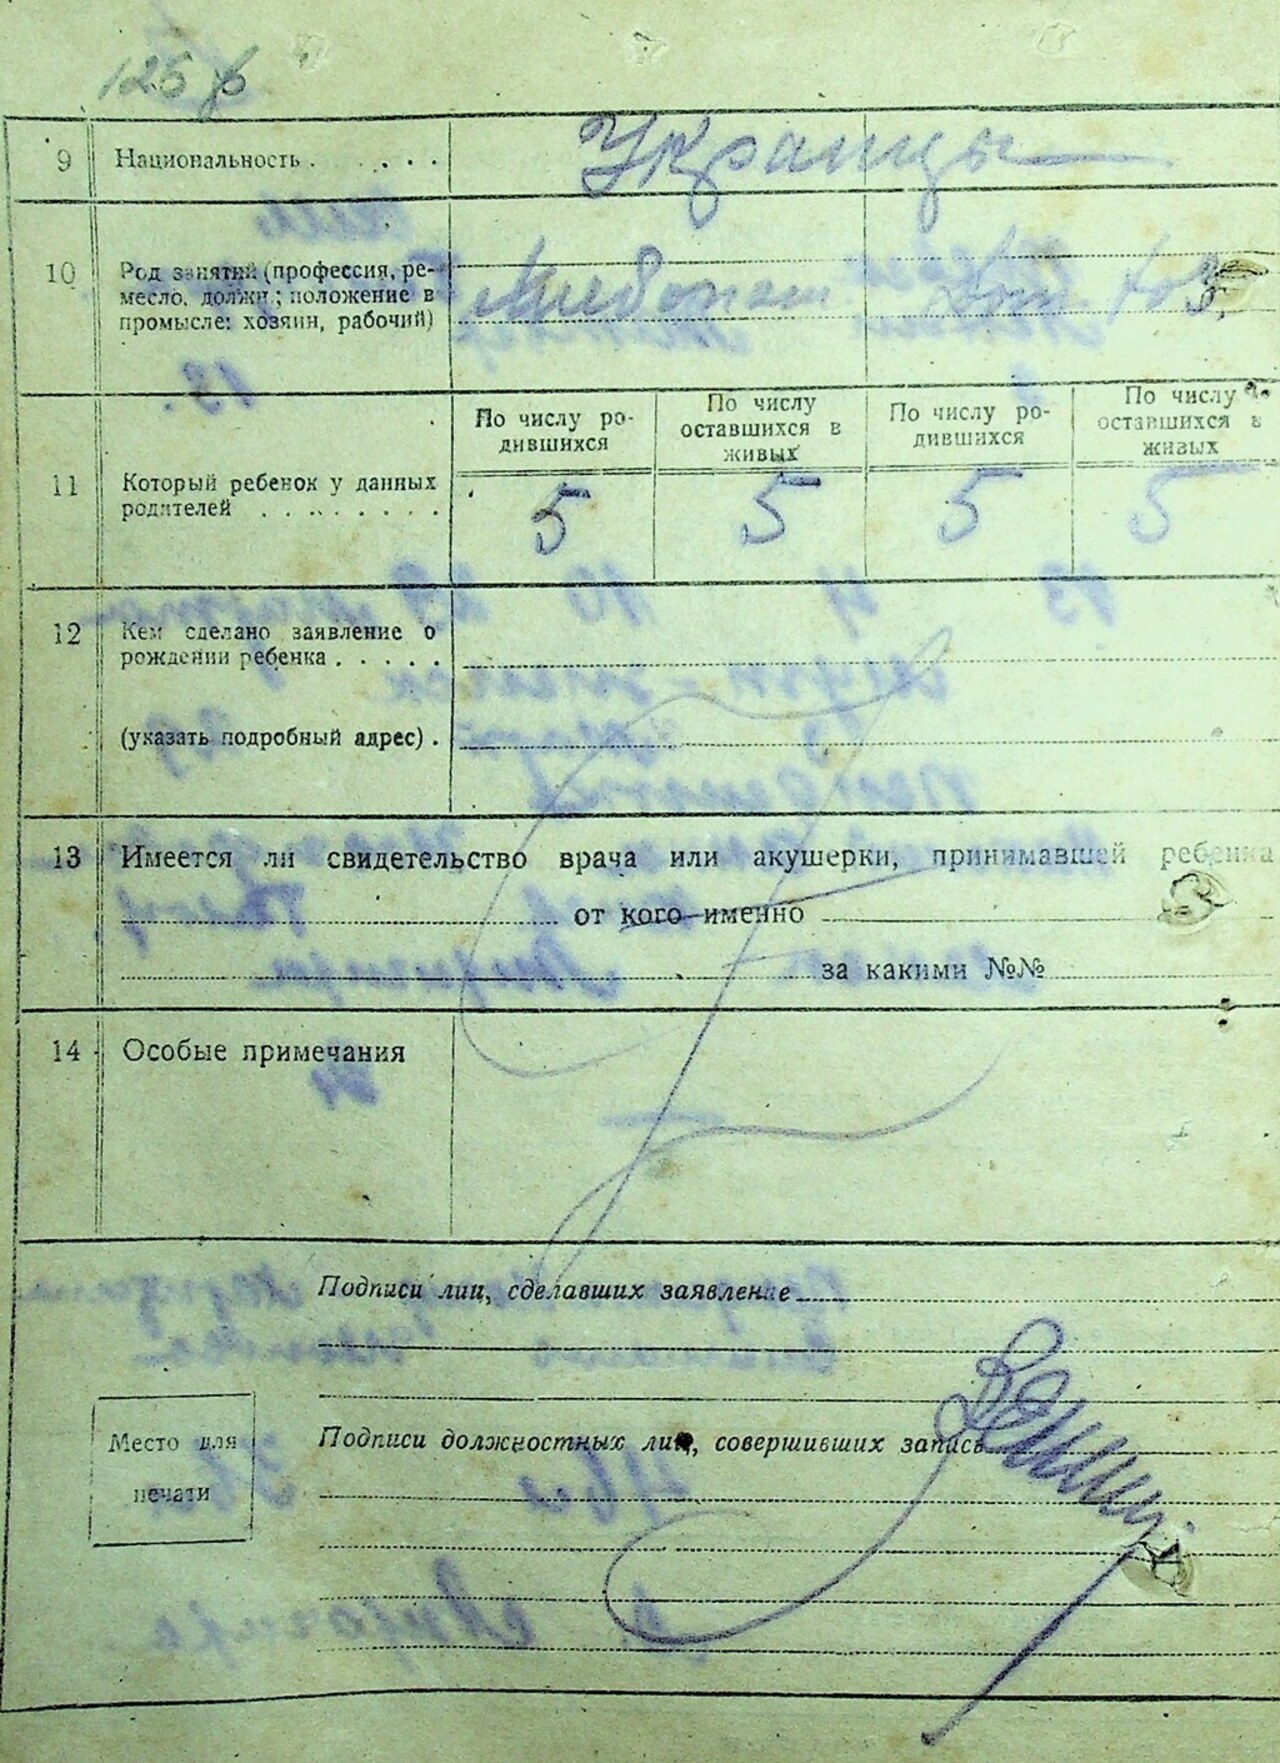 125
9 Национальность . . . . . . Украинцы
10 Род занятий (профессия, ре-
месло, должн.; положение в
промысле: хозяин, рабочий)
Хлебопаш Дом хоз.
По числу ро-
дившихся
По числу
оставшихся в
живых
По числу ро-
дившихся
По числу
оставшихся в
живых
11 Который ребенок у данных
родителей . . . . . . . .
5 5 5 5
12 Кем сделано заявление о
рождении ребенка . . . . .
(указать подробный адрес) .
13 Имеется ли свидетельство врача или акушерки, принимавшей ребенка
от кого именно
за какими №№
14 Особые примечания
Подписи лиц, сделавших заявление
Место для
печати
Подписи должностных лиц, совершивших запись